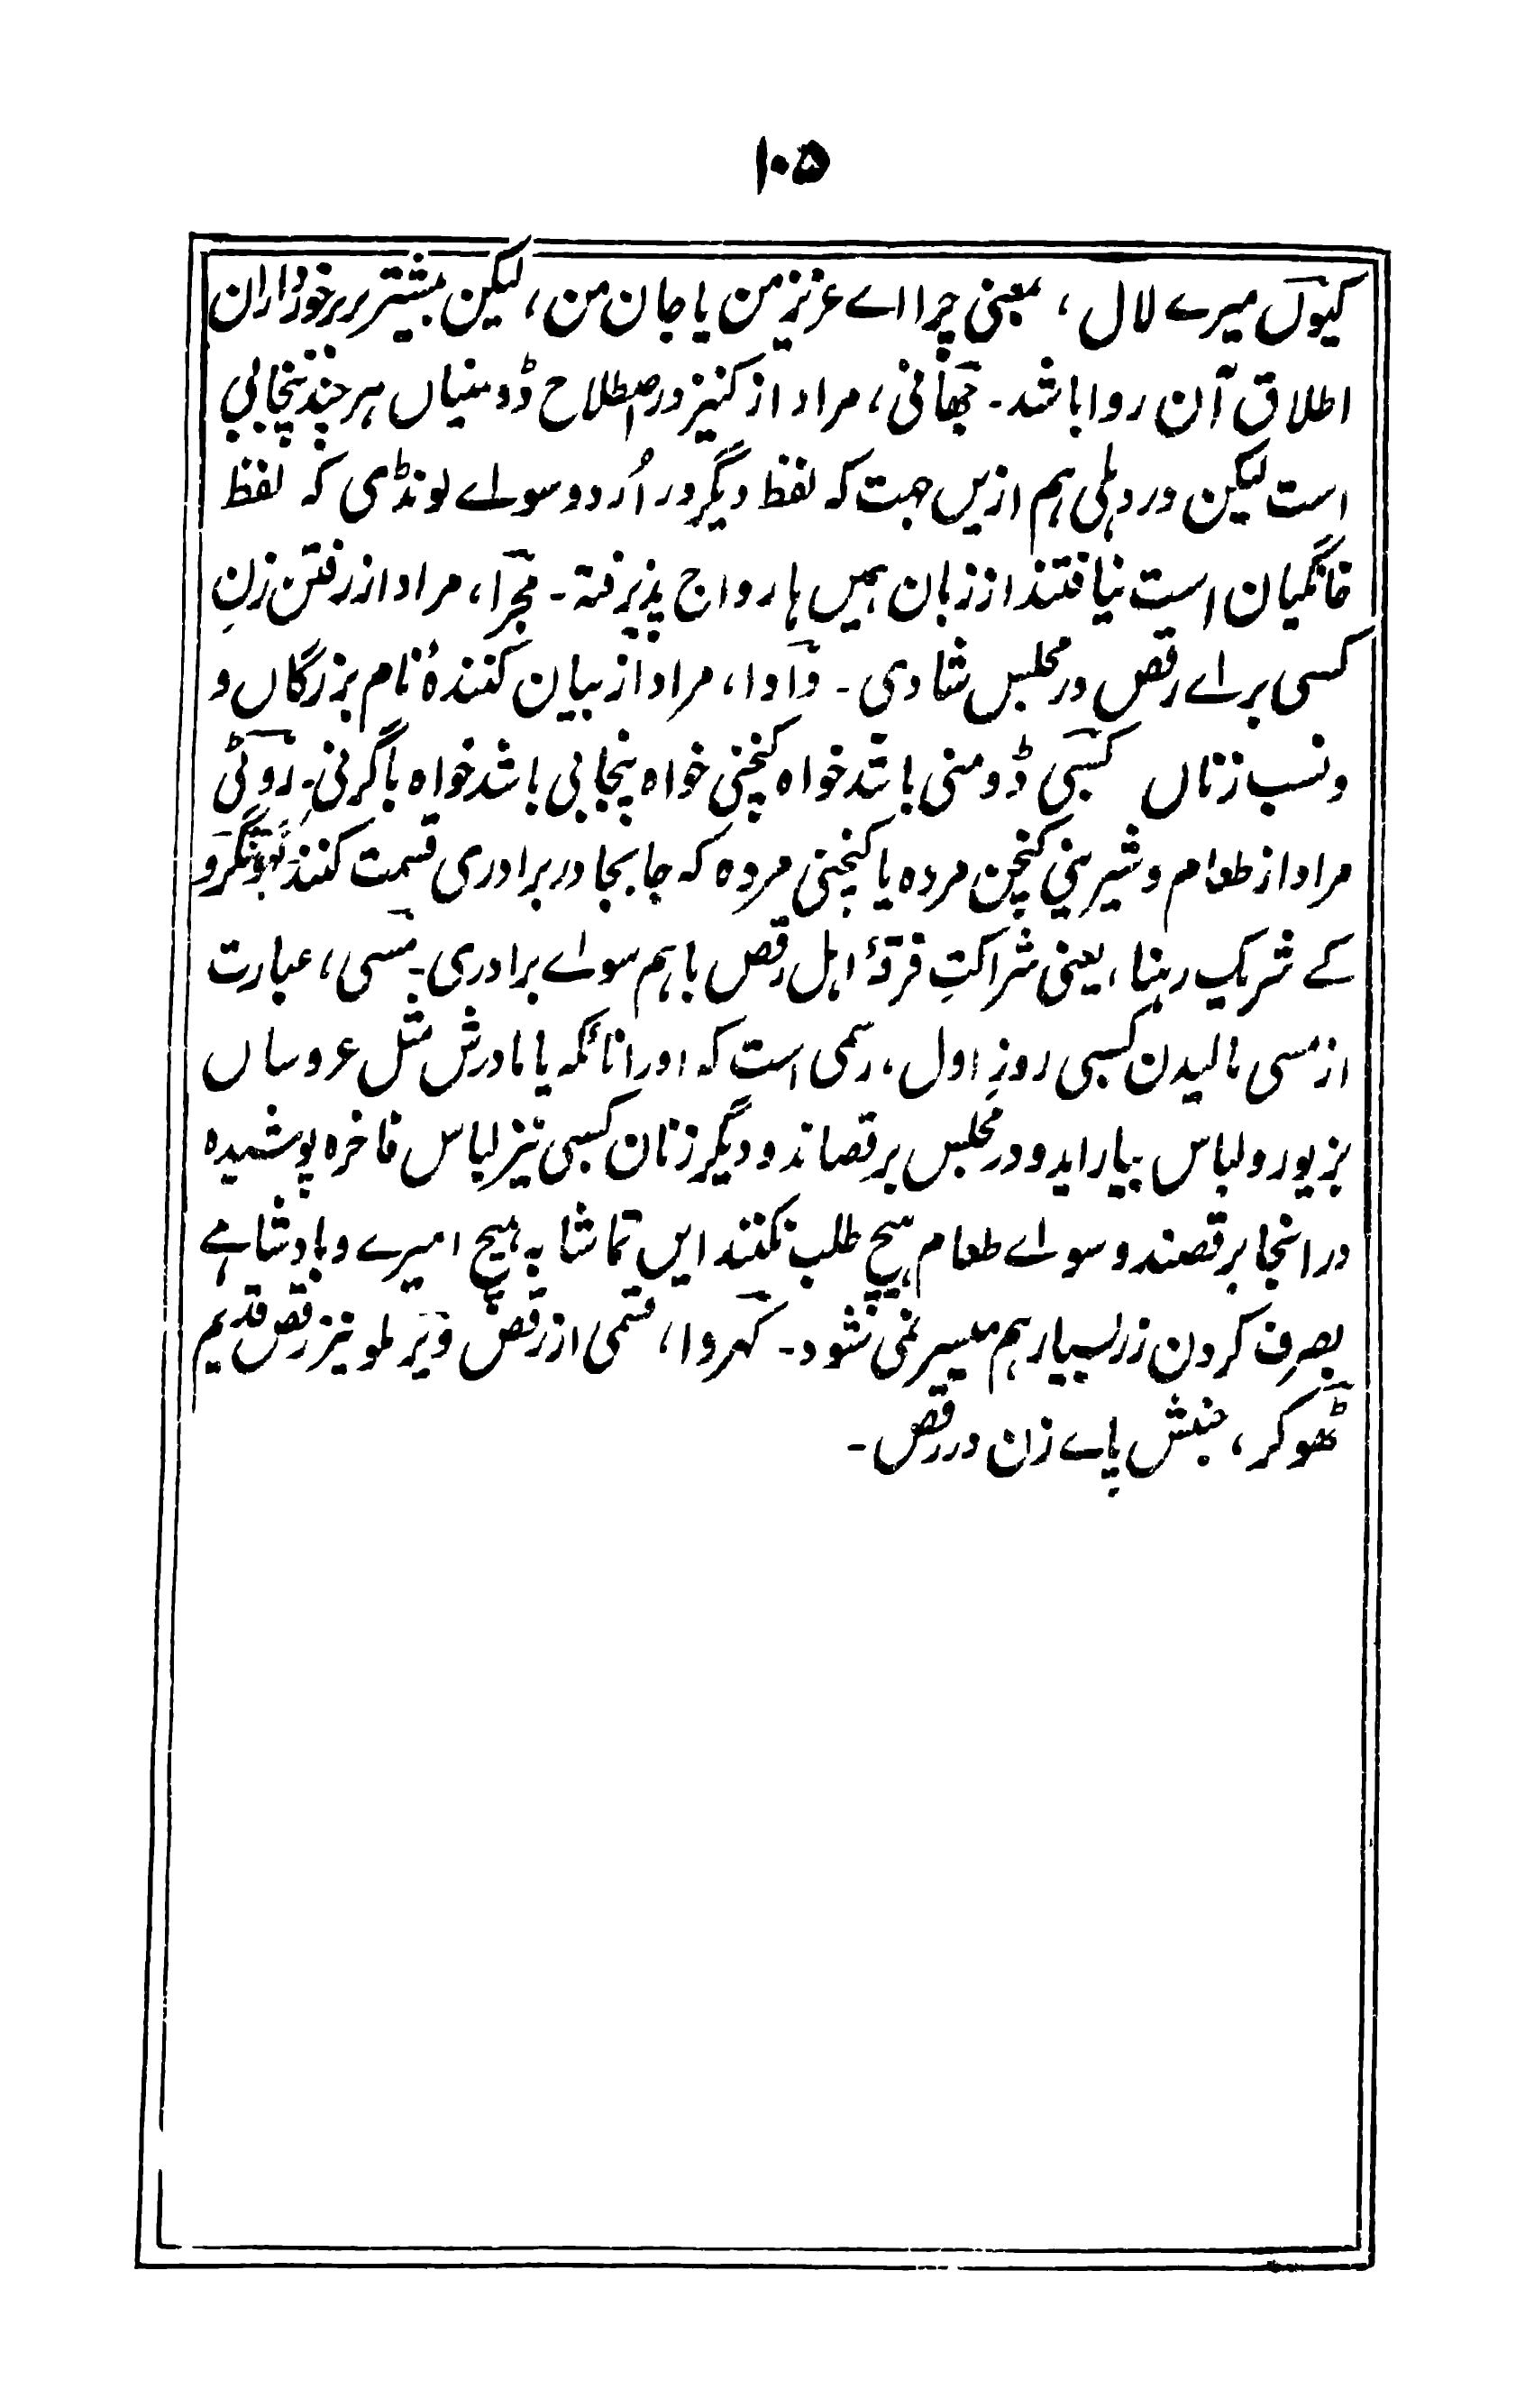 ۱۰۵
کیوں میرے لال، بمعنی چرا اے عزیز من یا جان من، لیکن بیشتر بر برخورداران
اطلاق آن روا باشد۔ چھانی، مراد از کنیز در اصطلاح ڈومنیاں ہر چند پنجابی
است لیکن در دہلی ہم ازیں جہت کہ لفظ دیگر در اُردو سواے لونڈی کہ لفظ
خانگیان است نیافتند از زبان ہمیں ہا رواج پذیرفتہ۔ مجرا، مراد از رفتن زنِ
کسبی براے رقص در مجلس شادی۔ داوا، مراد از بیان کنندۂ نام بزرگاں و
و نسب زناں کسبی ڈومنی باشد خواہ کنچنی خواہ پنجابی باشد خواہ باگرنی۔ روٹی
مراد از طعام و شیرینیِ کنچن مردہ یا کنچنی مردہ کہ جا بجا در برادری قسمت کنند۔
کے شریک رہنا، یعنی شراکتِ فرقۂ اہل رقص باہم سواے برادری۔ مسی، عبارت
از مسی مالیدن کسبی روزِ اول، رسمی است کہ اورا نائکہ یا مادرش مثل عروساں
بزیور و لباس بیاراید و در مجلس برقصاند و دیگر زنان کسبی نیز لباس فاخرہ پوشیدہ
در انجا برقصند و سواے طعام ہیچ طلب نکنند ایں تماشا بہ ہیچ امیرے و بادشاہے
بصرف کردن زر بسیار ہم میسر نمی شود۔ کہروا، قسمی از رقص و پرملو نیز رقص قدیم
ٹھوکر، جنبش پاے زن در رقص۔